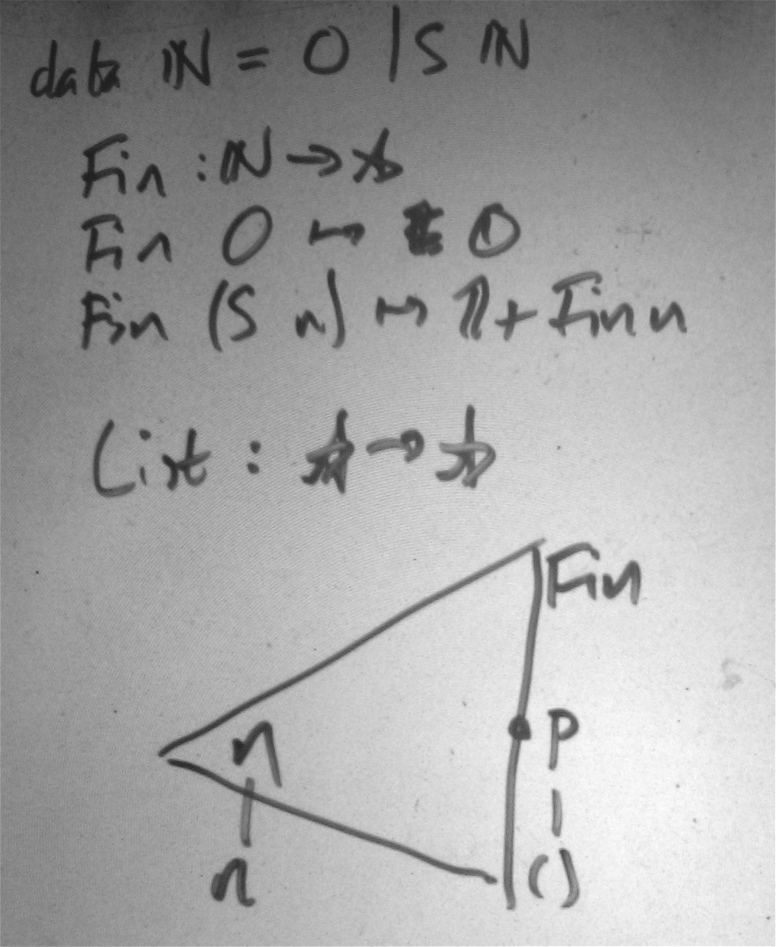 data ℕ = O | S ℕ
Fin : ℕ → ☆
Fin O ↦ 𝟘
Fin (S n) ↦ 𝟙 + Fin n
List : ☆ → ☆
Fin
n P
n ()